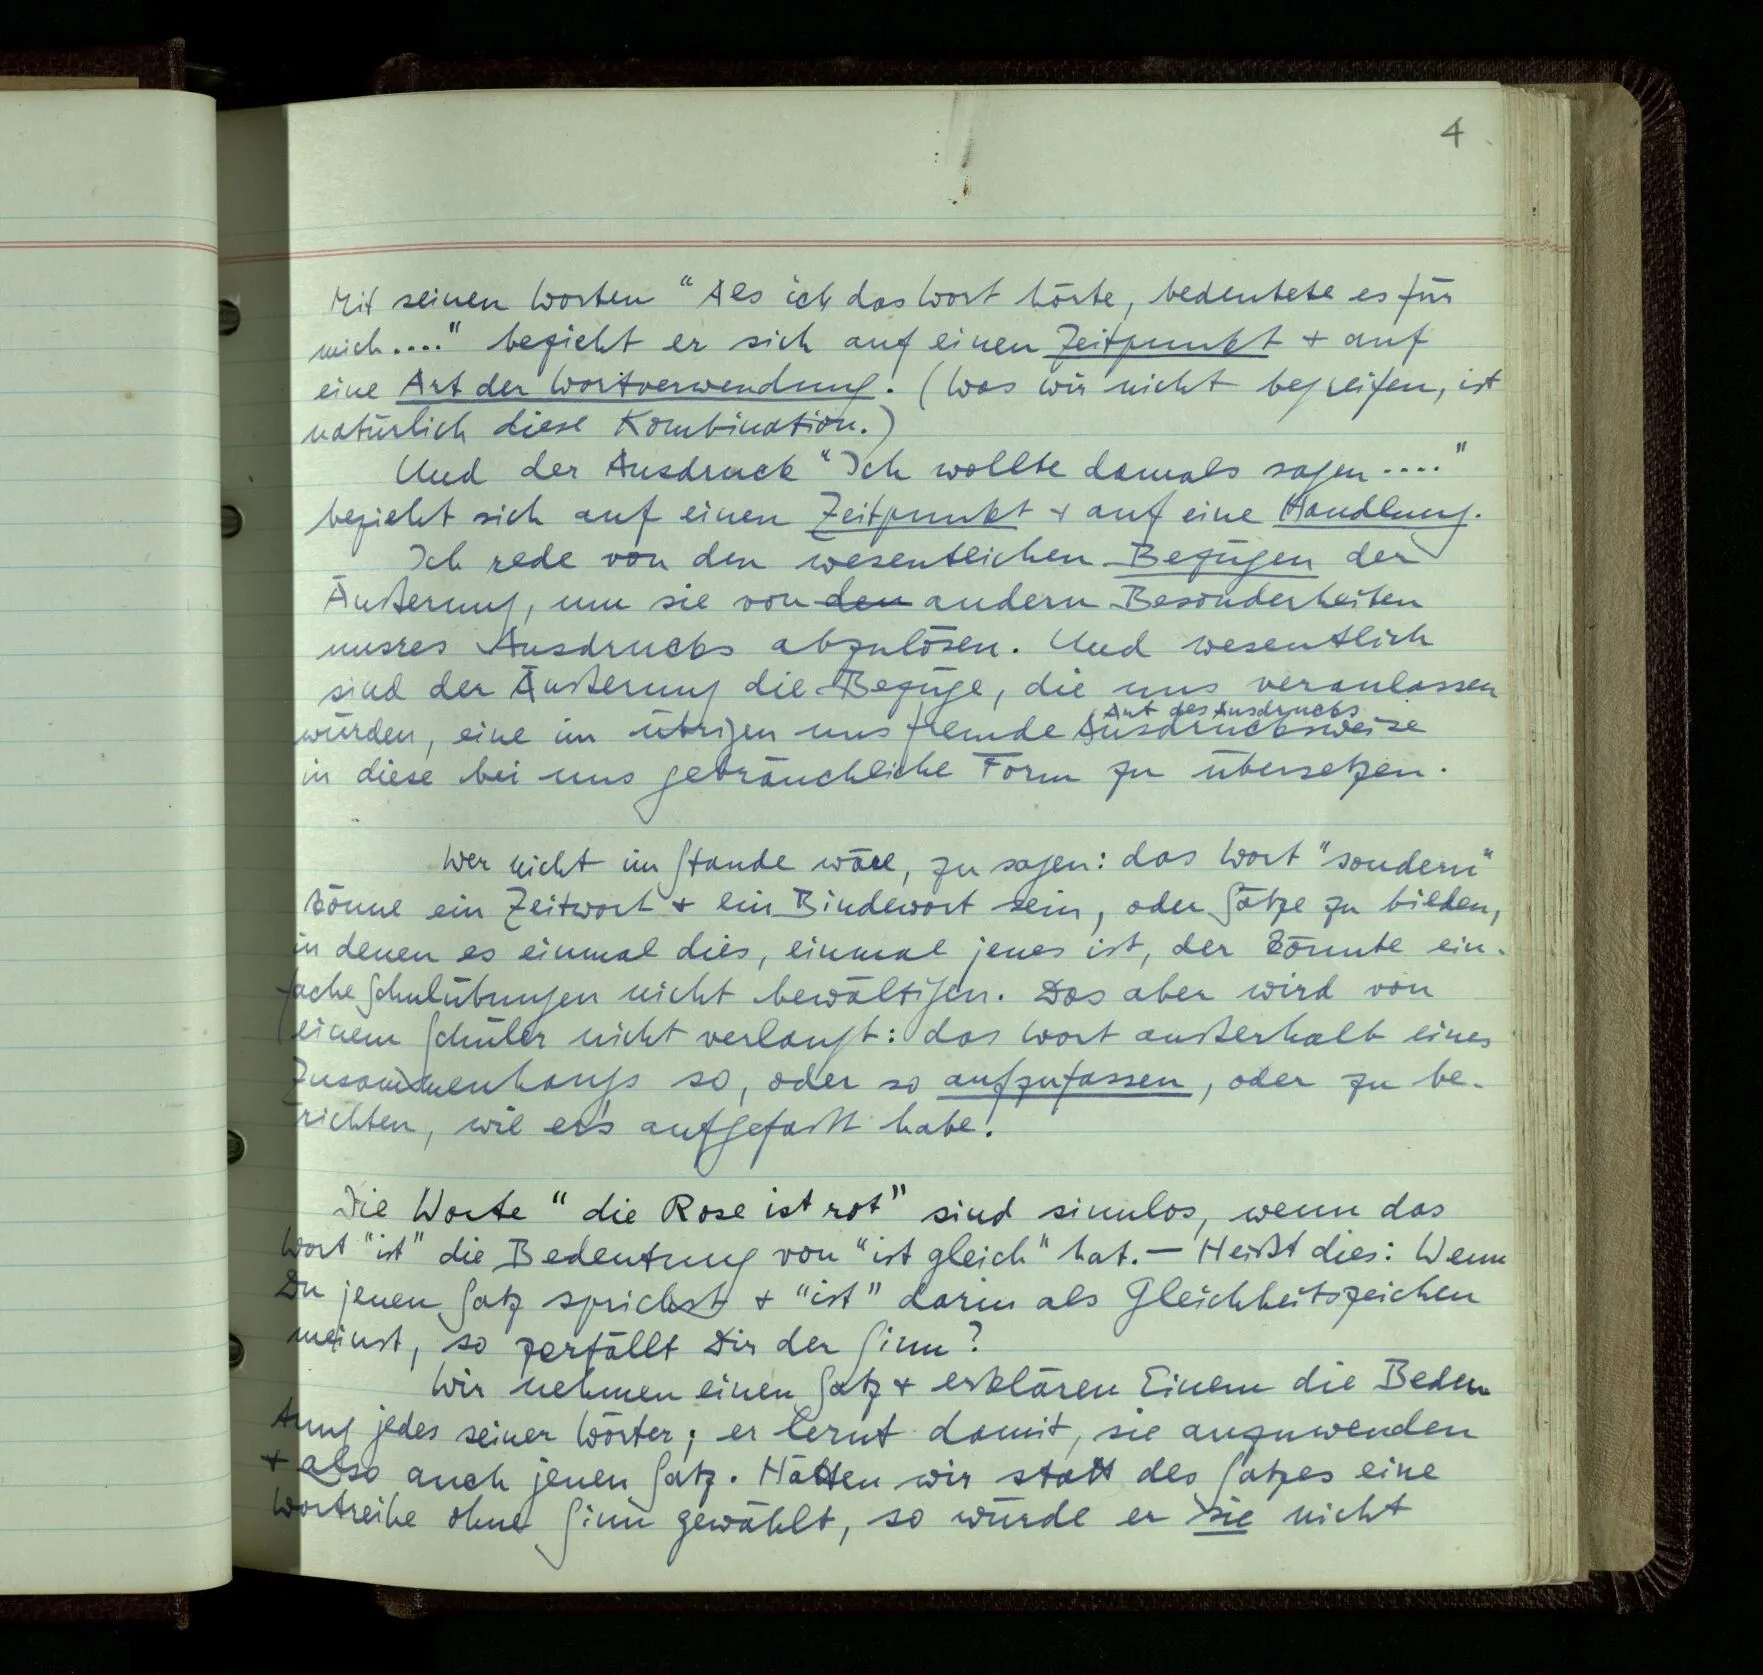 4
Mit seinen Worten "Als ich das Wort hörte, bedeutete es für
mich...." bezieht er sich auf einen Zeitpunkt + auf
eine Art der Wortverwendung. (Was wir nicht begreifen, ist
natürlich diese Kombination.)
Und der Ausdruck "Ich wollte damals sagen...."
bezieht sich auf einen Zeitpunkt + auf eine Handlung.
Ich rede von den wesentlichen Bezügen der
Äußerung, um sie von den andern Besonderheiten
unsres Ausdrucks abzulösen. Und wesentlich
sind der Äußerung die Bezüge, die uns veranlassen
Art des Ausdrucks
würden, eine im übrigen uns fremde Ausdrucksweise
in diese bei uns gebräuchliche Form zu übersetzen.
Wer nicht im Stande wäre, zu sagen: das Wort "sondern"
könne ein Zeitwort + ein Bindewort sein, oder Sätze zu bilden,
in denen es einmal dies, einmal jenes ist, der könnte ein-
fache Schulübungen nicht bewältigen. Das aber wird von
einem Schüler nicht verlangt: das Wort außerhalb eines
Zusammenhangs so, oder so aufzufassen, oder zu be-
richten, wie er's aufgefaßt habe.
Die Worte "die Rose ist rot" sind sinnlos, wenn das
Wort "ist" die Bedeutung von "ist gleich" hat. — Heißt dies: Wenn
Du jenen Satz sprichst + "ist" darin als Gleichheitszeichen
meinst, so zerfällt Dir der Sinn?
Wir nehmen einen Satz + erklären Einem die Bedeu-
tung jedes seiner Wörter; er lernt damit, sie anzuwenden
+ also auch jenen Satz. Hätten wir statt des Satzes eine
Wortreihe ohne Sinn gewählt, so würde er sie nicht